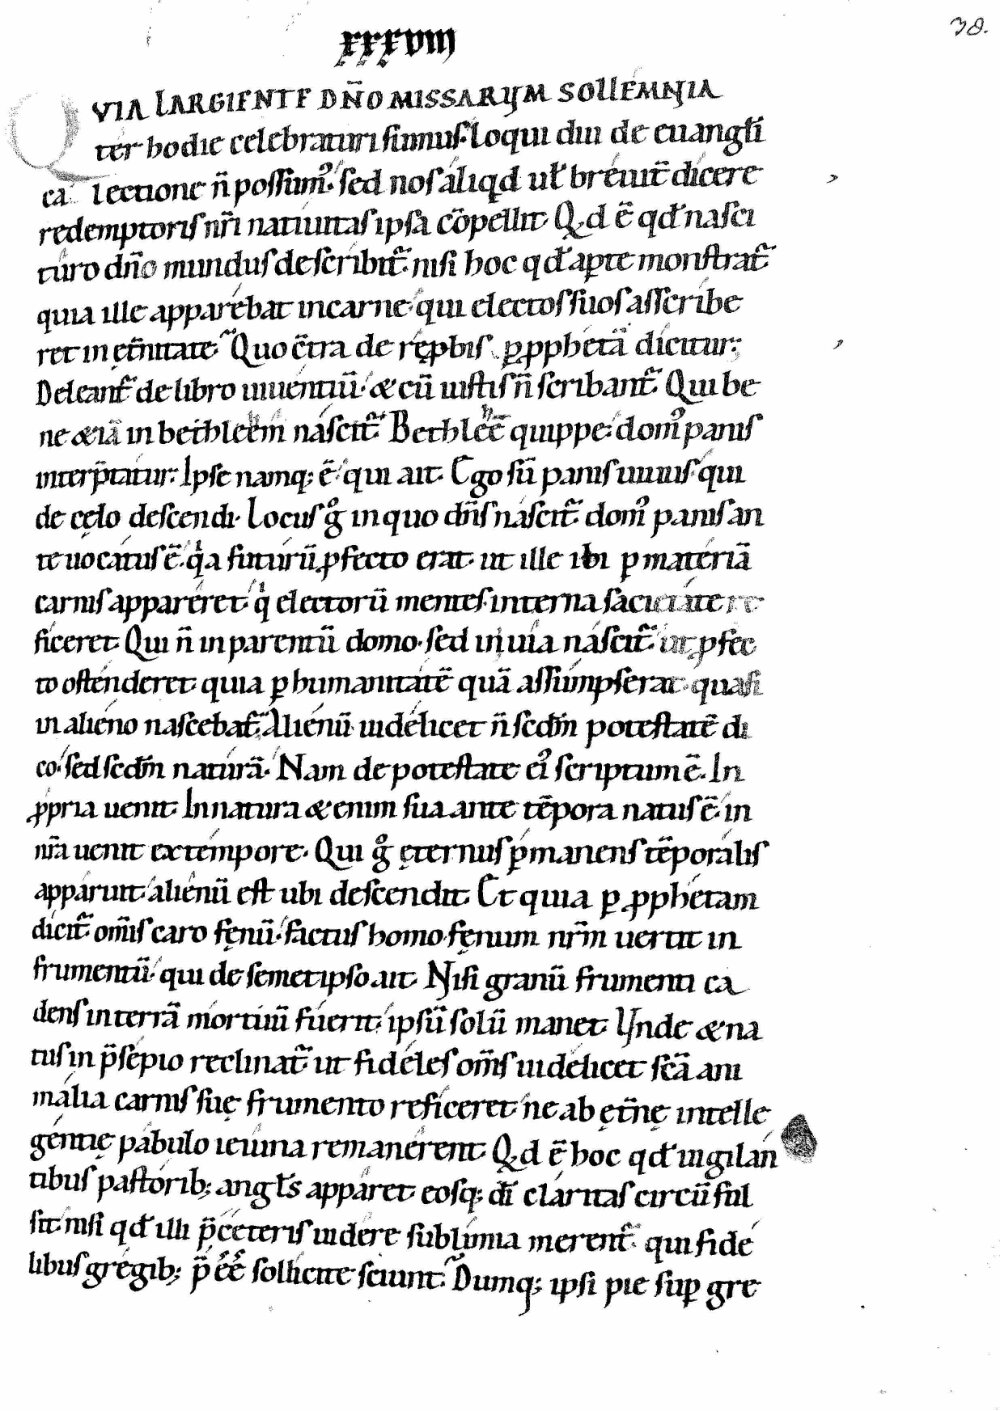 38.
xxxviij
QVIA LARGIENTE DÑO MISSARVM SOLLEMNIA
ter hodie celebraturi sumus. loqui diu de euangłi
ca lectione ñ possum᷒. sed nos aliqd uł breuit̃ dicere
redemptoris nr̃i natiuitas ipsa cõpellit. Qd ẽ qđ nasci
turo dño mundus describit̃. nisi hoc qđ apte monstrat̃
quia ille apparebat in carne. qui electos suos asscribe
ret in et̃nitate? Quo c̃tra de rep̱bis p̱ p̱phetã dicitur;
Deleant̃ de libro uiuentiũ. & cũ iustis ñ scribant̃. Qui be
ne & iã in bethleem nascit̃. Bethleẽ quippe. dom᷒ panis
interp̃tatur. Ipse namq; ẽ. qui ait. Ego sũ panis uiuus qui
de cęlo descendi. Locus g̊ in quo dñs nascit̃. dom᷒ panis an
te uocatus ẽ. qͥa futurũ p̱fecto erat. ut ille ibi p̱ materiã
carnis appareret. qͥ electorũ mentes interna sacietate re
ficeret. Qui ñ in parentũ domo. sed in uia nascit̃. ut p̱fec
to ostenderet. quia p̱ humanitatẽ quã assumpserat. quasi
in alieno nascebat̃. Alienũ uidelicet ñ sc̃dm̃ potestatẽ di
co. sed sc̃dm̃ naturã. Nam de potestate ei᷒ scriptum ẽ. In
p̱pria uenit. In natura & enim sua ante tẽpora natus ẽ. in
nr̃a uenit ex tempore. Qui g̊ ęternus p̱manens tẽporalis
apparuit. alienũ est ubi descendit. Et quia p̱ p̱phetam
dicit̃. om̃is caro fęnũ. factus homo. fęnum nr̃m uertit in
frumentũ. qui de semetipso ait. Nisi granũ frumenti ca
dens in terrã mortuũ fuerit. ipsũ solũ manet. Vnde & na
tus in p̃sepio reclinat̃. ut fideles om̃s uidelicet sc̃a ani
malia carnis suę frumento reficeret. ne ab et̃nę intelle
gentię pabulo ieiuna remanerent. Qd ẽ hoc qđ uigilan
tibus pastorib; angłs apparet. eosq; dĩ claritas circũful
sit. nisi qđ illi p̃ ceteris uidere sublimia merent̃. qui fide
libus gregib; p̃eẽ sollicite sciunt? Dumq; ipsi pie sup̱ gre